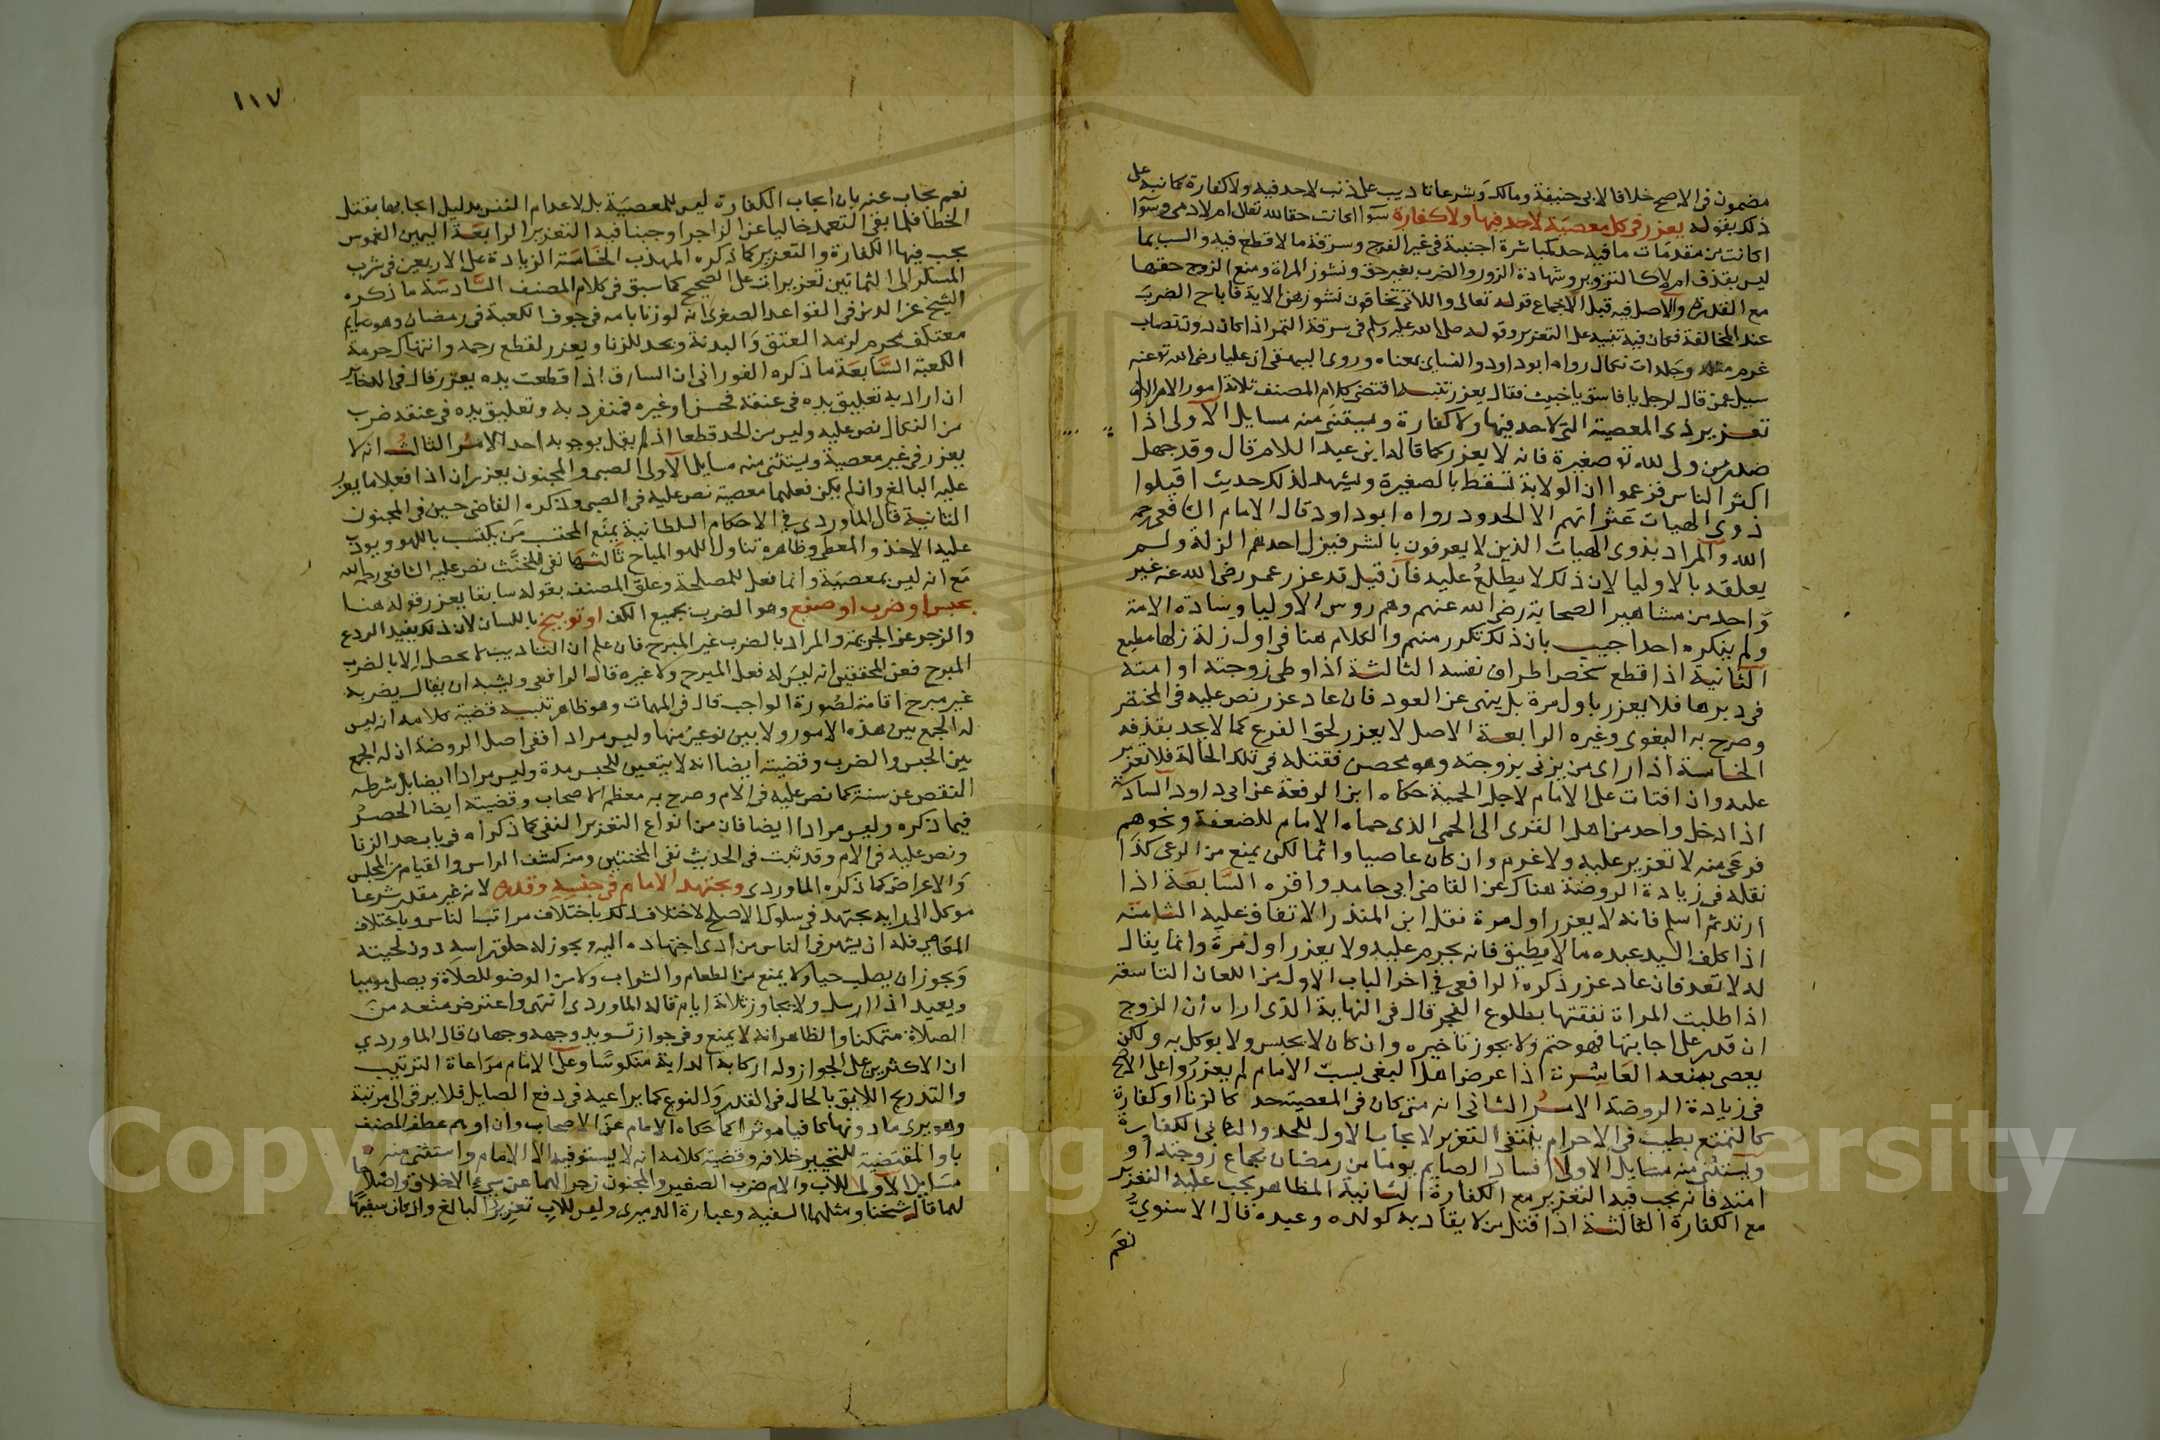 مضمون في الاصح خلافا لابي حنيفة ومالك وشرعا تاديب على ذنب لاحد فيه ولا كفارة كما نبه على
ذلك بقوله يعزر في كل معصية لاحد فيها ولا كفارة سوا اكانت حقا لله تعالى ام لادمي وسوا
اكانت من مقدمات ما فيه حد كمباشرة اجنبية في غير الفرج وسرقة ما لا قطع فيه والسب بما
ليس بقذف ام لا كالتزوير وشهادة الزور والضرب بغير حق ونشوز المراة ومنع الزوج حقها
مع القدرة والاصل فيه قبل الاجماع قوله تعالى واللاتي تخافون نشوزهن الاية فاباح الضرب
عند المخالفة فكان فيه تنبيه على التعزير وقوله صلى الله عليه وسلم في سرقة التمر اذا كان دون نصاب
غرم مثله وجلدات نكال رواه ابو داود والنساي بمعناه وروى البيهقي ان عليا رضي الله تع عنه
سيل عمن قال لرجل يا فاسق يا خبيث فقال يعزر تنبيه اقتضى كلام المصنف ثلاثة امور الامر الاول
تعزير ذي المعصية التي لاحد فيها ولا كفارة ويستثنى منه مسايل الاولى اذا
صدر من ولي لله تع صغيرة فانه لا يعزر كما قاله ابن عبد السلام قال وقد جهل
اكثر الناس فزعموا ان الولاية تسقط بالصغيرة ويشهد لذلك حديث اقيلوا
ذوي الهيات عثراتهم الا الحدود رواه ابو داود قال الامام الشافعي رحمه
الله والمراد بذوي الهيات الذين لا يعرفون بالشر فيزل احدهم الزلة ولم
يعلقه بالاوليا لان ذلك لا يطلع عليه فان قيل قد عزر عمر رضي الله عنه غير
واحد من مشاهير الصحابة رضي الله عنهم وهم روس الاوليا وسادة الامة
ولم ينكره احد اجيب بان ذلك تكرر منهم والكلام هنا في اول زلة زلها مطيع
الثانية اذا قطع شخص اطراف نفسه الثالثة اذا وطي زوجته او امته
في دبرها فلا يعزر باول مرة بل ينهى عن العود فان عاد عزر نص عليه في المختصر
وصرح به البغوي وغيره الرابعة الاصل لا يعزر لحق الفرع كما لا يحد بقذفه
الخامسة اذا راى من يزني بزوجته وهو محصن فقتله في تلك الحالة فلا تعزير
عليه وان افتات على الامام لاجل الحمية حكاه ابن الرفعة عن ابي داود السادسة
اذا دخل واحد من اهل القرى الى الحمى الذي حماه الامام للضعفة ونحوهم
فرعى منه لا تعزير عليه ولا غرم وان كان عاصيا واثما لكن يمنع من الرعي كذا
نقله في زيادة الروضة هناك عن القاضي ابي حامد واقره السابعة اذا
ارتد ثم اسلم فانه لا يعزر اول مرة نقل ابن المنذر الاتفاق عليه الثامنة
اذا كلف السيد عبده ما لا يطيق فانه يحرم عليه ولا يعزر اول مرة وانما يقال
له لا تعد فان عاد عزر ذكره الرافعي في اخر الباب الاول من اللعان التاسعة
اذا طلبت المراة نفقتها بطلوع الفجر قال في النهاية الذي اراه ان الزوج
ان قدر على اجابتها فهو حتم ولا يجوز تاخيره وان كان لا يحبس ولا يوكل به ولكن
يعصي بمنعه العاشرة اذا عرض اهل البغي بسب الامام لم يعزروا على الاصح
في زيادة الروضة الامر الثاني انه متى كان في المعصية حد كالزنا او كفارة
كالتمتع بطيب في الاحرام ينتفي التعزير لايجاب الاول للحد والثاني الكفارة
ويستثنى منه مسايل الاولى افساد الصايم يوما من رمضان بجماع زوجته او
امته فانه يجب فيه التعزير مع الكفارة الثانية المظاهر يجب عليه التعزير
مع الكفارة الثالثة اذا قتل من لا يقاد به كولده وعبده قال الاسنوي
نعم
١١٧
نعم يجاب عنه بان ايجاب الكفارة ليس للمعصية بل لاعدام النفس بدليل ايجابها بقتل
الخطا فلما بقي التعمد خاليا عن الزاجر اوجبنا فيه التعزير الرابعة اليمين الغموس
يجب فيها الكفارة والتعزير كما ذكره المهذب الخامسة الزيادة على الاربعين في شرب
المسكر الى الثمانين تعزيرات على الصحيح كما سبق في كلام المصنف السادسة ما ذكره
الشيخ عز الدين في القواعد الصغرى انه لو زنا بامه في جوف الكعبة في رمضان وهو صايم
معتكف محرم لزمه العتق والبدنة ويحد للزنا ويعزر لقطع رحمه وانتهاك حرمة
الكعبة السابعة ما ذكره الفوراني ان السارق اذا قطعت يده يعزر قال في الذخاير
ان اراد به تعليق يده في عنقه فحسن او غيره فمنفرد به وتعليق يده في عنقه ضرب
من النكال نص عليه وليس من الحد قطعا اذ لم يقل بوجوبه احد الامر الثالث انه لا
يعزر في غير معصية ويستثنى منه مسايل الاولى الصبي والمجنون يعزران اذا فعلا ما يعزر
عليه البالغ وان لم يكن فعلهما معصية نص عليه في الصبي وذكره القاضي حسين في المجنون
الثانية قال الماوردي في الاحكام السلطانية يمنع المحتسب من يكتسب باللهو ويودب
عليه الاخذ والمعطي وظاهره تناول اللهو المباح ثالثها نفي المخنث نص عليه الشافعي رحمه الله
مع انه ليس بمعصية وانما فعل للمصلحة وعلق المصنف بقوله سابقا يعزر قوله هنا
بحبس او ضرب او صفع وهو الضرب بجميع الكف او توبيخ باللسان لان ذلك يفيد الردع
والزجر عن الجريمة والمراد بالضرب غير المبرح فان علم ان التاديب لا يحصل الا بالضرب
المبرح فعن المحققين انه ليس له فعل المبرح ولا غيره قال الرافعي ويشبه ان يقال يضربه
غير مبرح اقامة لصورة الواجب قال في المهمات وهو ظاهر تنبيه قضية كلامه انه ليس
له الجمع بين هذه الامور ولا بين نوعين منها وليس مرادا ففي اصل الروضة ان له الجمع
بين الحبس والضرب وقضيته ايضا انه لا يتعين للحبس مدة وليس مرادا ايضا بل شرطه
النقص عن سنة كما نص عليه في الام وصرح به معظم الاصحاب وقضيته ايضا الحصر
فيما ذكره وليس مرادا ايضا فان من انواع التعزير النفي كما ذكراه في باب حد الزنا
ونص عليه في الام وقد ثبت في الحديث نفي المخنثين ومنه كشف الراس والقيام من المجلس
والاعراض كما ذكره الماوردي ويجتهد الامام في جنسه وقدره لانه غير مقدر شرعا
موكل الى رايه يجتهد في سلوك الاصلح لاختلاف ذلك باختلاف مراتب الناس وباختلاف
المعاصي فله ان يشهر في الناس من ادى اجتهاده اليه ويجوز له حلق راسه دون لحيته
ويجوز ان يصلب حيا ولا يمنع من الطعام والشراب ولا من الوضو للصلاة ويصلي موميا
ويعيد اذا ارسل ولا يجاوز ثلاثة ايام قاله الماوردي انتهى واعترض منعه من
الصلاة متمكنا والظاهر انه لا يمنع وفي جواز تسويد وجهه وجهان قال الماوردي
ان الاكثرين على الجواز وله اركابه الدابة منكوسا وعلى الامام مراعاة الترتيب
والتدريج اللايق بالحال في القدر والنوع كما يراعيه في دفع الصايل فلا يرقى الى مرتبة
وهو يرى ما دونها كافيا موثرا كما حكاه الامام عن الاصحاب وان اوهم عطف المصنف
باو المقتضية للتخيير خلافه وقضية كلامه انه لا يستوفيه الا الامام واستثنى منه
مسايل الاولى للاب والام ضرب الصغير والمجنون زجرا لهما عن سيئ الاخلاق واصلاحا
لهما قال شيخنا ومثلهما السفيه وعبارة الدميري وليس للاب تعزير البالغ وان كان سفيها
Copyright © King Saud University